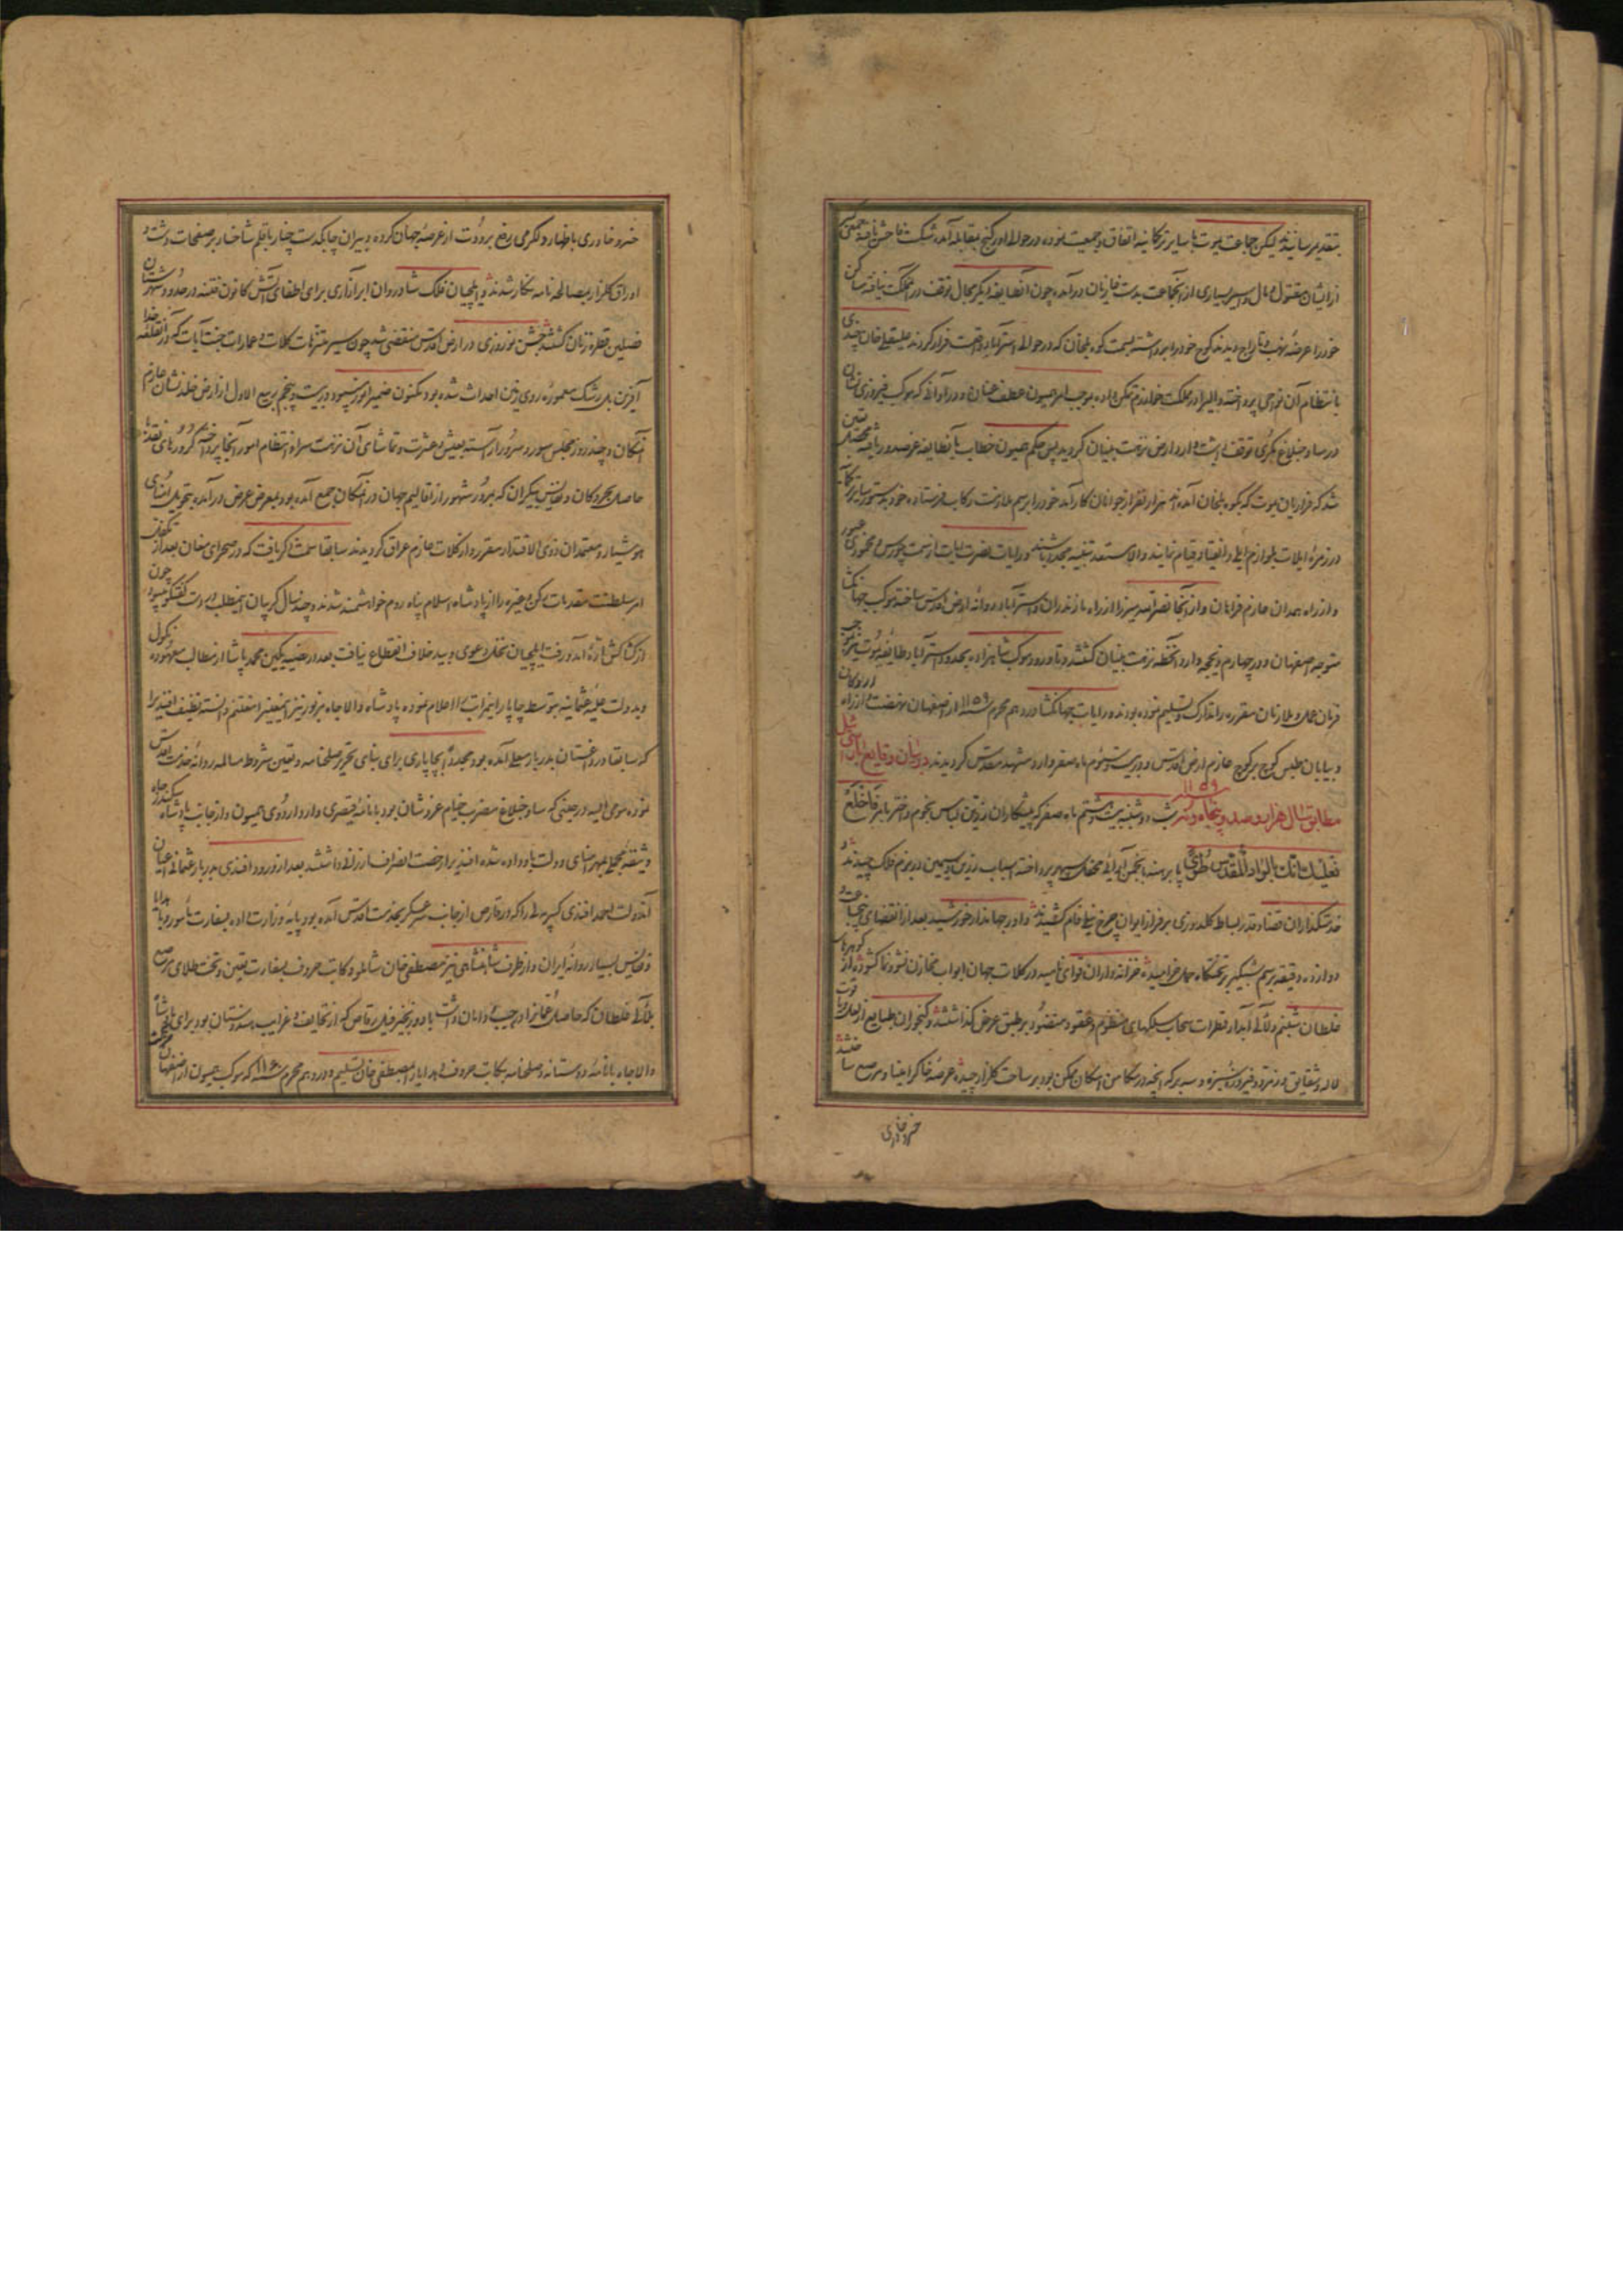 بتقدیم رسانیدند لیکن جماعت یموت با سایر ترکمانیه اتفاق و جمعیت نموده در حوالی اورکنج بمقابله آمده شکست فاحش یافته جمعی کثیر
از ایشان مقتول و مال و اسیر بسیاری از آنجماعت بدست غازیان درآمده چون آنطایفه دیگر مجال توقف در آنمملکت نیافته مساکن
خود را عرضهٔ نهب و تاراج دیدند کوچ خود را برداشته بسمت کوه بلخان که در حوالی استرآباد واقعست فرار کردند علیقلی خان چندی
بانتظام آن نواحی پرداخته والی را در مملکت خوارزم تمکن داده بموجب امر همیون عطف عنان و در اوانی که موکب فیروزی نشان
در ساوجبلاغ مکری توقف داشت وارد ارض نزهت بنیان گردید پس حکم همیون خطاب بآنطایفه عز صدور یافته
شد که فراریان یموت که بکوه بلخان آمده‌اند هزار نفر از جوانان کارآمد خود را برسم ملازمت رکاب فرستاده خود بدستور سایر
در زمرهٔ ایلات بلوازم ایلی و انقیاد قیام نمایند والا مستعد تنبیه مجدد باشند و رایات نصرت ایات از سمت چورس و محمودی عبور
و از راه همدان عازم فراهان و از آنجا نصرالله میرزا از راه مازندران و استرآباد روانه ارض اقدس ساخته موکب جهانگشا
متوجه اصفهان و در چهارم ذیحجه وارد آنخطه نزهت بنیان گشتند و تا ورود موکب شاهزاده بحدود استرآباد طایفه یموت نیز بموجب
فرمان عمل و ملازمان مقرره را تدارک و تسلیم نموده بودند و رایات جهانگشا در دهم محرم سنه ۱۱۵۹ از اصفهان نهضت و از راه اردکان
و بیابان طبس کوچ بر کوچ عازم ارض اقدس و در بیست و سوم ماه صفر وارد مشهد مقدس گردیدند در بیان وقایع بارس ئیل
مطابق سال هزار و صد و پنجاه و نه ۱۱۵۹ شب دوشنبه بیست و هشتم ماه صفر که پیشکاران زرین لباس نجوم و اختر بامر فاخلع
نعلیک انک بالواد المقدس طوی پا برهنه بانجمن آرائی محفل سپهر پرداخته اسباب زرین و سیمین در بزم فلک چیدند و
خدمتگذاران قضا و قدر بساط کلدوزی بر فراز ایوان چرخ نیلی فام کشیدند داور جهاندار خورشید بعد از انقضای
دوازده دقیقه برسم شبگیر بر تختگاه حمل خرامیده خزانه داران قوای نامیه در کلات جهان ابواب مخازن نشو و نما گشوده از گوهرهای
غلطان شبنم و لآلی آبدار قطرات سحاب سبکهای منظوم و عقود منضود بر طبق عرض گذاشتند و گنجوران طبایع از لعل و یاقوت
لاله و شقایق و زمرد و فیروزه سبزه و سه برگه آنچه در مکامن امکان ممکن بود بر ساحت گلزار چیده عرصهٔ خاک را مینا و مرصع ساختند
خسرو خاوری
خسرو خاوری باظهار دلگرمی رفع برودت از عرصهٔ جهان کرده دبیران چابکدست چنار با قلم شاخسار بر صفحات دشت و
اوراق گلزار مصالحه نامه نگار شدند و ایلچیان فلک شادروان ابر آذاری برای اطفای آتش کانون فتنه در حدود شهرستان
فصلین قطره زنان گشتند جشن نوروزی در ارض اقدس منقضی شد چون سیر متنزهات کلات و عمارات جنت آیات که در آنقلعه خدا
آفرین بل رشک معمورهٔ روی زمین احداث شده بود مکنون ضمیر انور بود در بیست و پنجم ربیع الاول از ارض خلد نشان عازم
آنمکان و چند روز مجلس سور و سرور آراسته بعیش و عشرت و تماشای آن نزهت سرا و انتظام امور آنجا پرداخته کرورهای نقد
حاصل بحر و کان و نفایس بیکران که بمرور شهور از اقالیم جهان در آنمکان جمع آمده بود بمعرض عرض درآمده بتحویل امنای
هوشیار و معتمدان ذوی الاقتدار مقرر و از کلات عازم عراق گردیدند سابقا سمت ذکر یافت که در صحرای مغان بعد از تکفل
امر سلطنت مقدمات رکن و غیره را از پادشاه اسلام پناه روم خواهشمند شدند و چند سال کریبان اینمطلب در دست گفتگو بود چون
از کشاکش تازهٔ آمد و رفت ایلچیان نخل دعوی و بید خلاف انقطاع نیافت بعد از قضیه یکین محمد پاشا از مطالب معهوده نکول
و بدولت علیه عثمانیه بتوسط چاپار اینمراتب را اعلام نموده پادشاه والاجاه بزبور نیز اینمعنی را مغتنم دانسته نظیف افندی را
که سابقا در داغستان بدربار معلی آمده بود مجددا بچاپاری برای بنای تحریر صلحنامه و تعین شروط مسالمه روانه خدمت اقدس
نموده مومی الیه در حینی که ساوجبلاغ مضرب خیام عز و شان بود با نامهٔ قیصری وارد اردوی همیون و از جانب پادشاه سکندر جاه
وثیقه محلی بمهر امنای دولت باو داده شده افندی را رخصت انصراف ارزانی داشتند بعد از ورود افندی بدربار عثمانی اعیان
آندولت احمد افندی کسریه لی را که در قارص از جانب سرعسکر بخدمت اقدس آمده بود پایهٔ وزارت داده بسفارت مامور و با هدایا
و نفایس بسیار روانه ایران و از طرف شاهنشاهی نیز مصطفی خان شاملو و کاتب حروف بسفارت تعین و تخت طلای مرصع
بلآلی غلطان که حاصل عمان را در جیب و دامان داشت با دو زنجیر فیل رقاص که از تحایف و غرایب هندوستان بود برای پادشاه
والاجاه با نامهٔ دوستانه و صلحنامه بکاتب حروف و هدایا را بمصطفی خان تسلیم و در دهم محرم سنه ۱۱۶۰ که موکب همیون از اصفهان